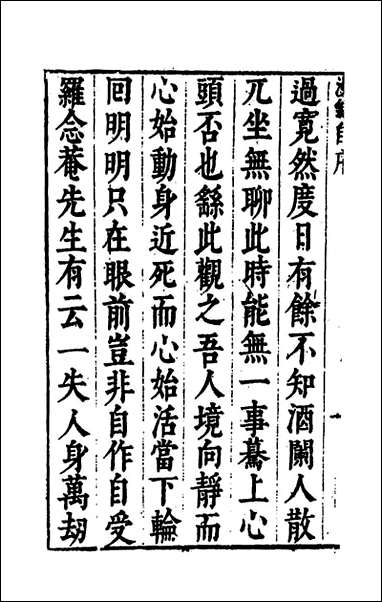 過寬然度日有餘不知酒闌人散
兀坐無聊此時能無一事驀上心
頭否也繇此觀之吾人境向靜而
心始動身近死而心始活當下輪
回明明只在眼前豈非自作自受
羅念菴先生有云一失人身萬劫